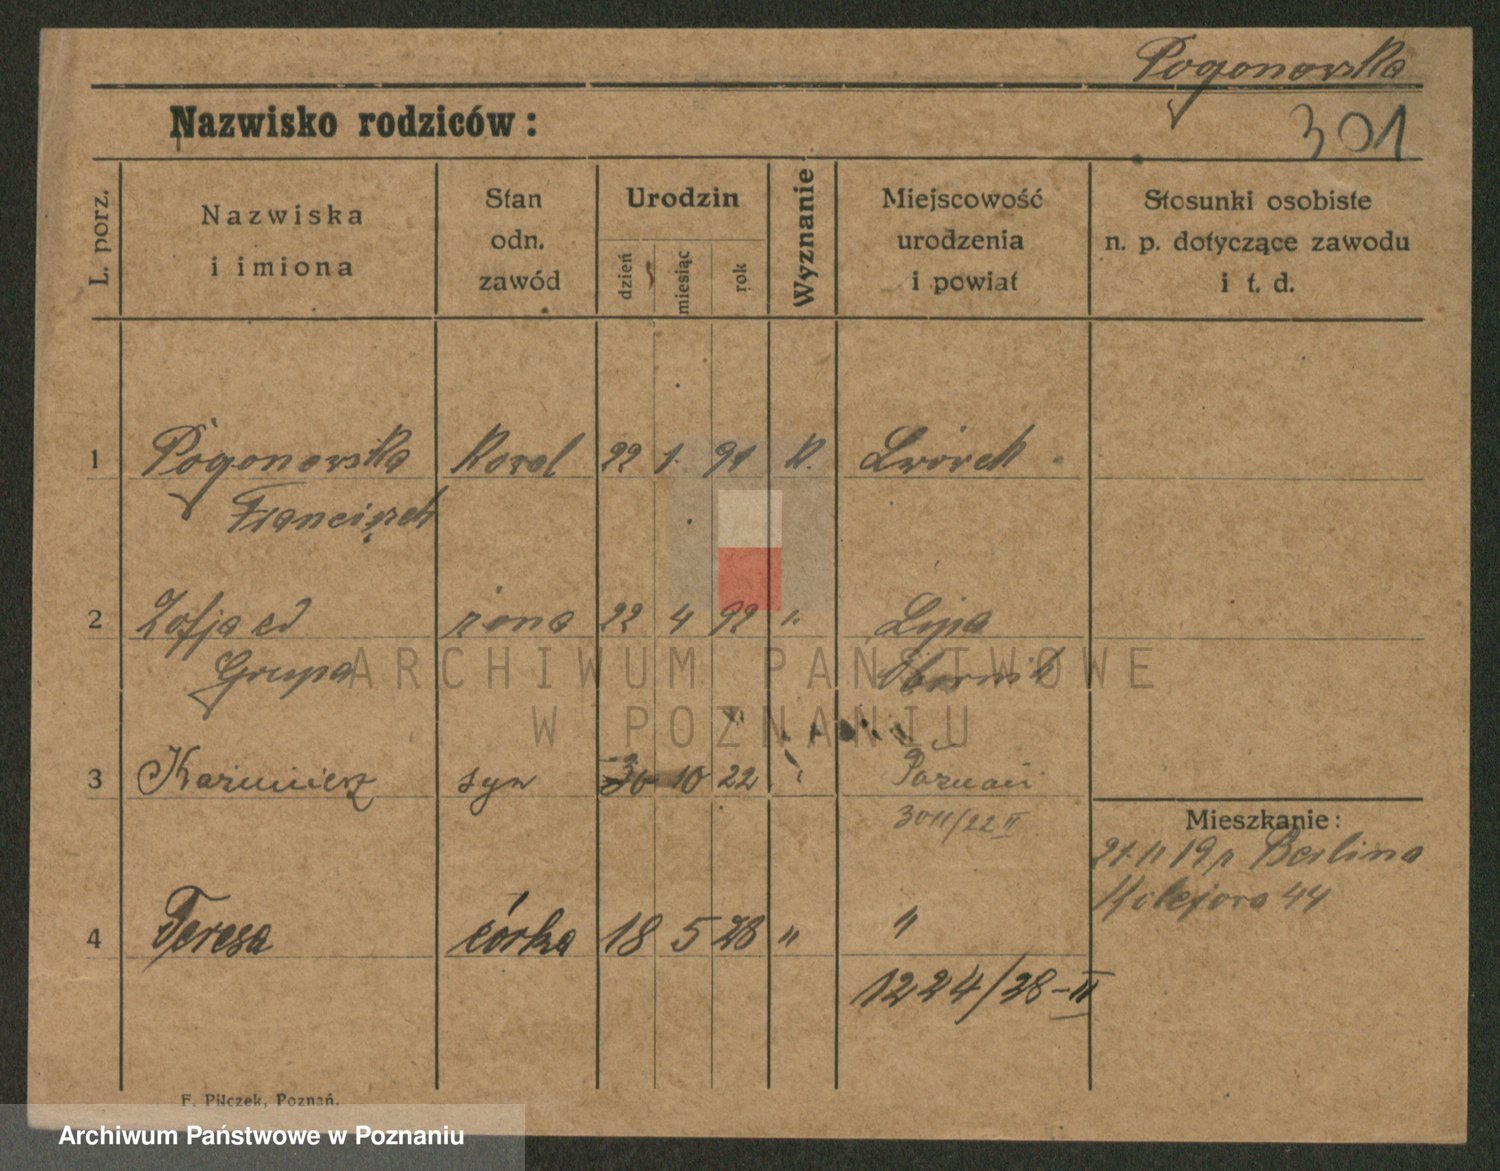 Pogonowska
301
Nazwisko rodziców:
L. porz.
Nazwiska
i imiona
Stan
odn.
zawód
Urodzin
dzień
miesiąc
rok
Wyznanie
Miejscowość
urodzenia
i powiat
Stosunki osobiste
n. p. dotyczące zawodu
i t. d.
1 Pogonowska Kowal 22 1. 91 k. Lwówek
Franciszek
2 Zofja ed żona 22 4 92 " Lipa
Grupa Obornik
3 Kazimierz syn 30 10 22 " Poznań
3011/22 II
Mieszkanie:
21.11 19 r Berlina
Kolejowa 44
4 Teresa córka 18 5 28 " "
1224/28-II
F. Pilczek, Poznań.
ARCHIWUM PAŃSTWOWE
W POZNANIU
Archiwum Państwowe w Poznaniu